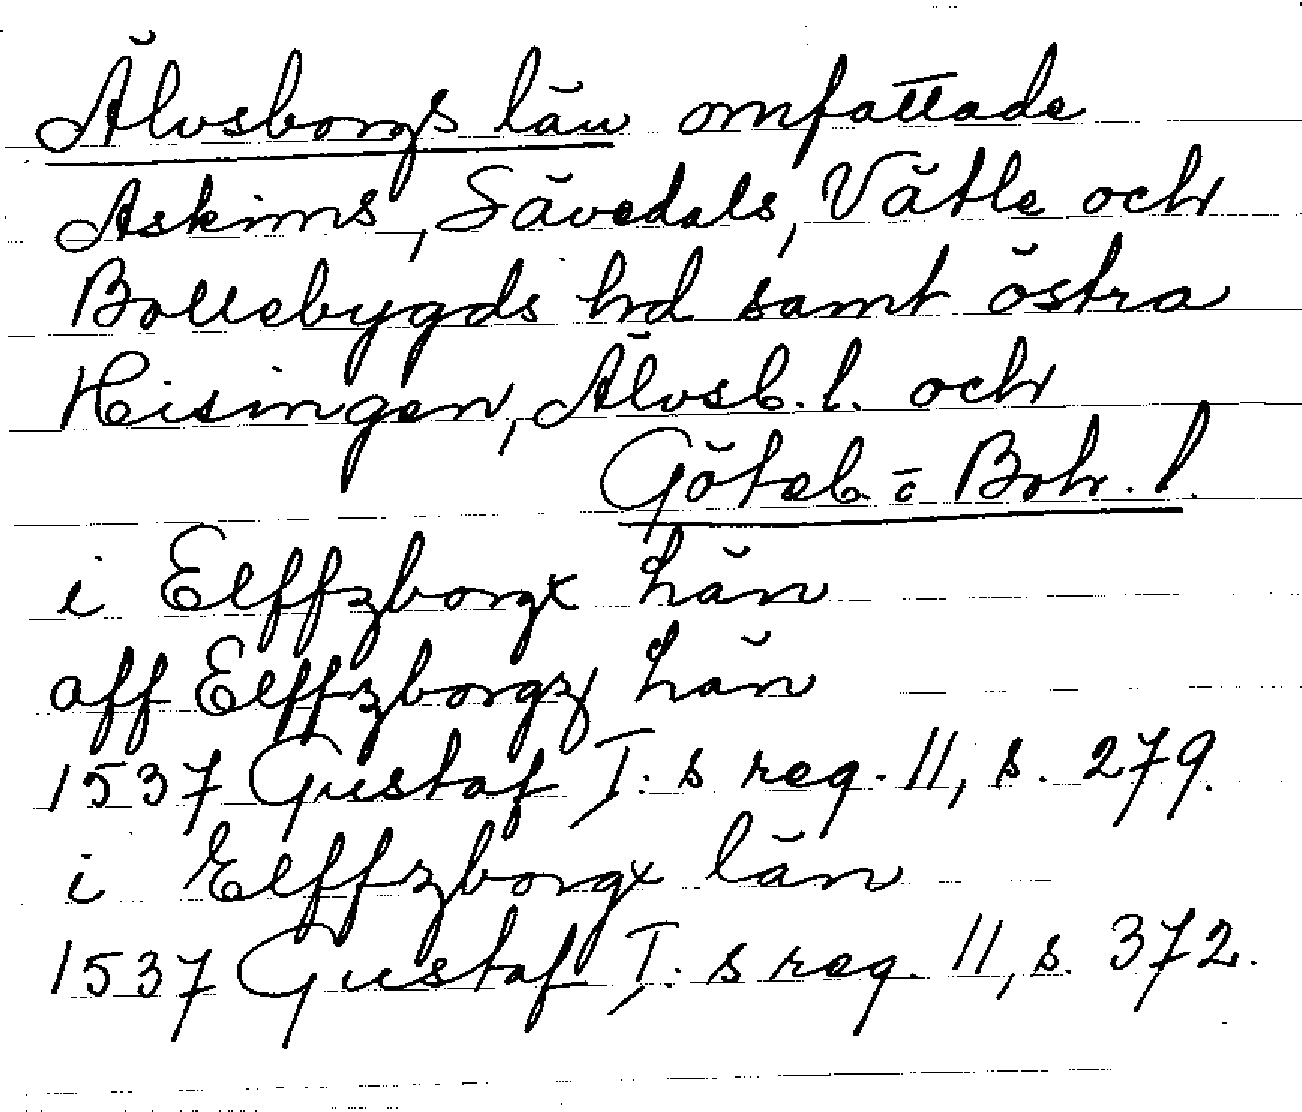 Älvsborgs län omfattade
Askims, Sävedals, Vätle och
Bollebygds hd samt östra
Hisingen, Älvsb. l. och
Göteb. o. Boh. l.
i Elffzborgx hän
aff Elffzborgz hän
1537 Gustaf I:s reg. 11, s. 279.
i Elffzborgx län
1537 Gustaf I:s reg. 11, s. 372.